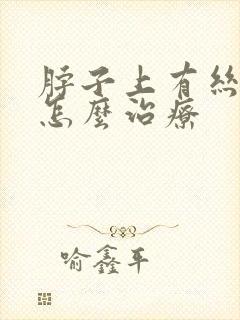 脖子上有絲
怎麼治療
喻鑫平